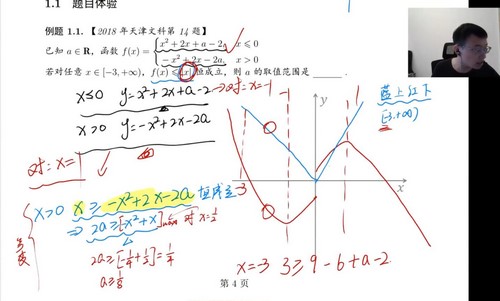 1.1 题目体验
例题 1.1. 【2018 年天津文科第 14 题】
已知 a ∈ R，函数 f(x) = { x² + 2x + a − 2, x ⩽ 0
−x² + 2x − 2a, x > 0
若对任意 x ∈ [−3, +∞)，f(x) ⩽ |x| 恒成立，则 a 的取值范围是 ____ .
x≤0 y=x²+2x+a-2 → 对: x=-1
x>0 y=-x²+2x-2a
对: x=1
蓝上红下
[-3,+∞)
-3
-1
1
y
x
x>0 x ≥ -x²+2x-2a 恒成立
⇒ 2a≥[-x²+x]max 对 x=½
2a≥[-¼+½]=¼
a≥⅛
x=-3 3≥9-6+a-2
第 4 页